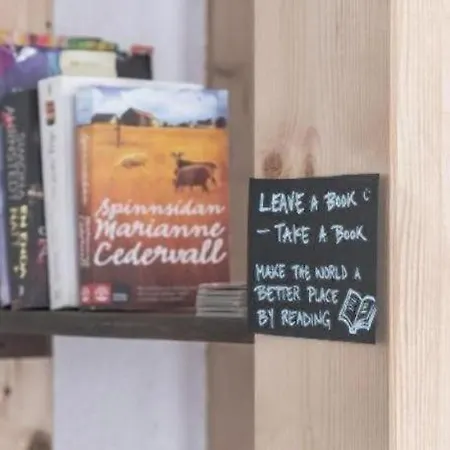 Spinnsidan
Marianne
Cedervall
LEAVE A BOOK
- TAKE A BOOK
MAKE THE WORLD A
BETTER PLACE
BY READING